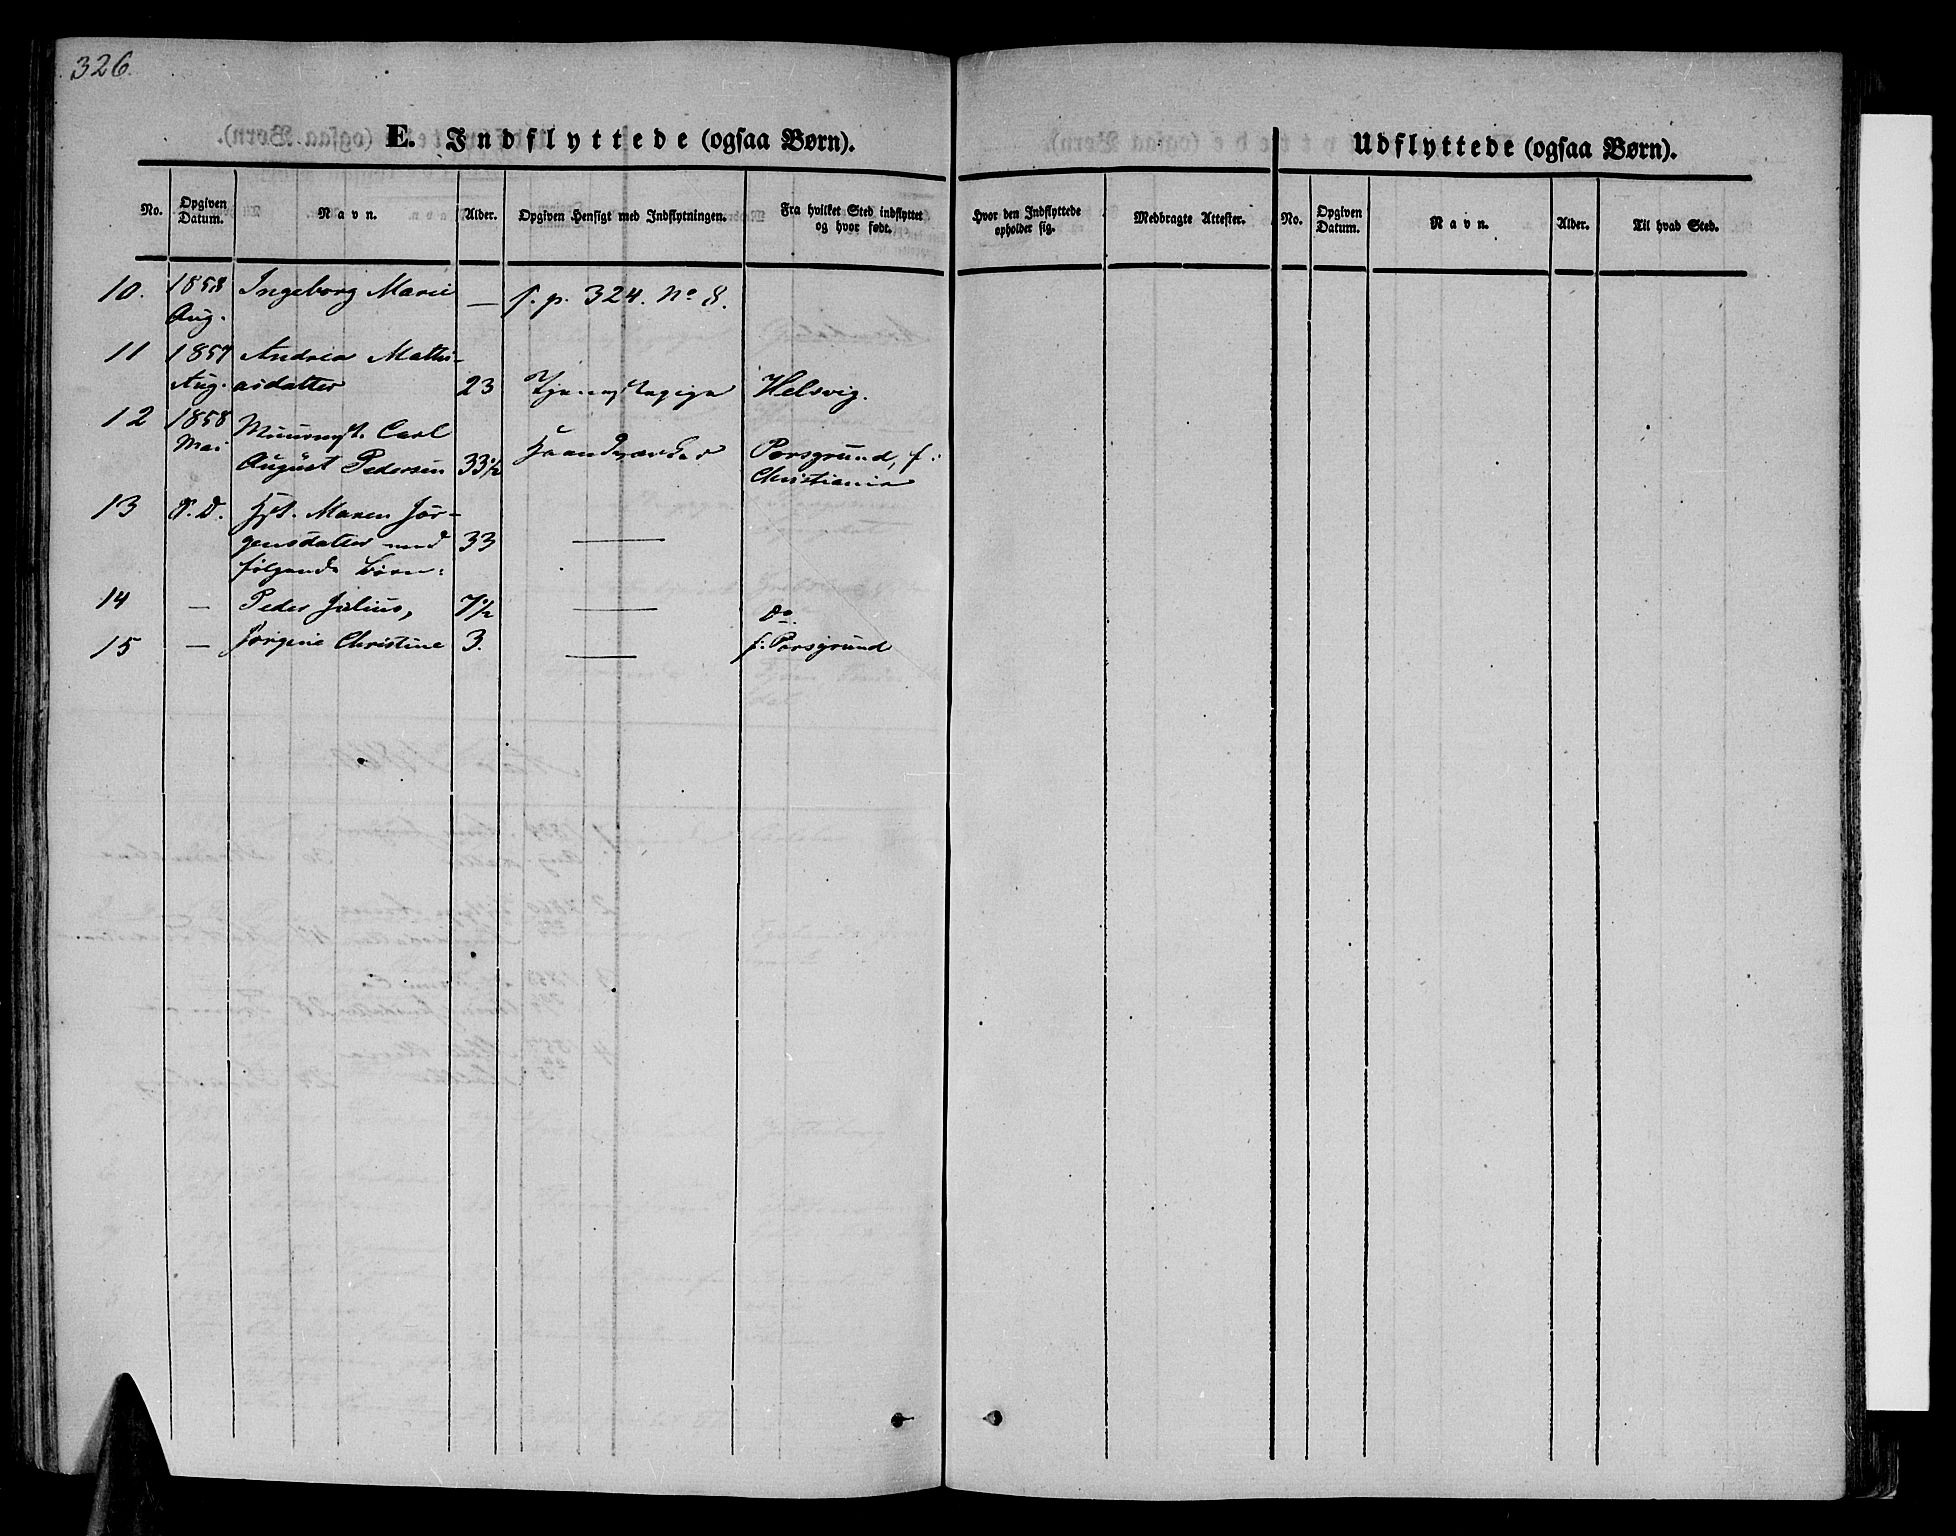 326.
E. Indflyttede (ogsaa Børn).
Udflyttede (ogsaa Børn).
No. Opgiven Datum. Navn. Alder. Opgiven Hensigt med Indflytningen. Fra hvilket Sted indflyttet og hvor født. Hvor den Indflyttede opholder sig. Medbragte Attester. No. Opgiven Datum. Navn. Alder. Til hvad Sted.
10. 1858 Ingeborg Marie — s. p. 324. No 8.
Aug.
11 1857 Andrea Mathi-
Aug. asdatter 23 Tjenestepige Helsvig.
12 1858 Muurmst. Carl
Mai August Pedersen 33½ Haandværker Porsgrund, f:
Christiania
13 S. D. Hst. Maren Jør-
gensdatter med 33 —
følgende Børn:
14 — Peder Julius, 7½ — Do
15 — Jørgine Christine 3. — f: Porsgrund